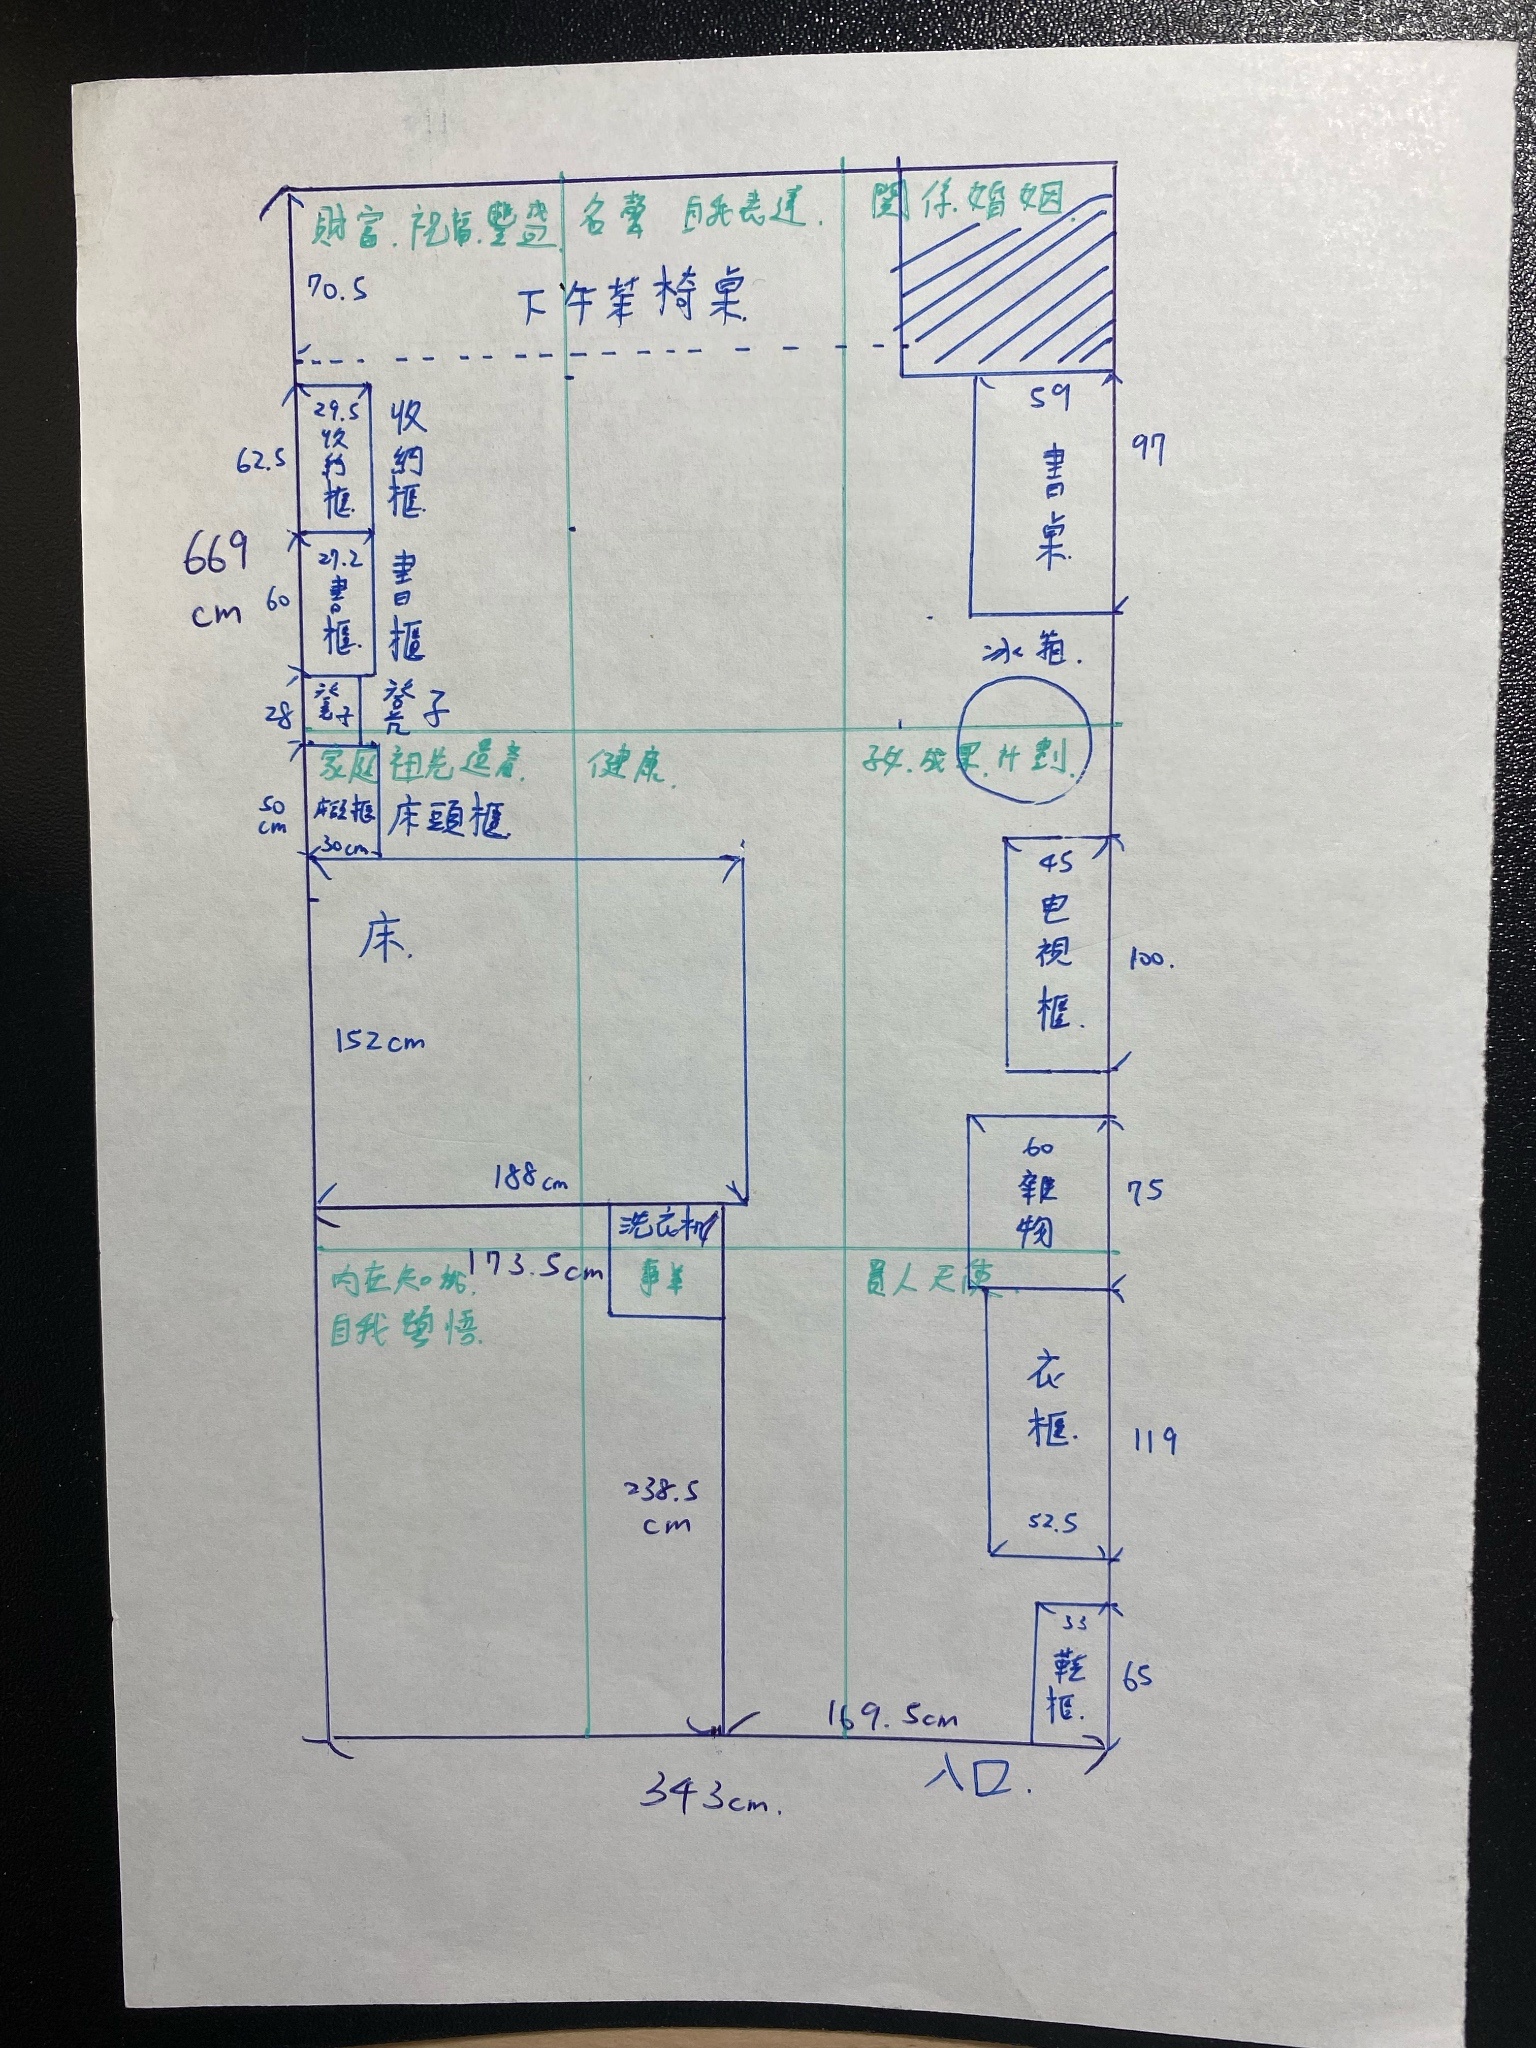 財富.祝福.豐盛
名聲 自我表達.
關係.婚姻.
70.5
下午茶椅桌
29.5
收納框.
收納框.
62.5
59
書桌
97
669
cm
27.2
書框.
書框
60
冰箱.
28
凳子
凳子
家庭 祖先遺產.
健康.
子女.成果.计劃.
50
cm
床頭框
30cm
床頭櫃
床.
152cm
188cm
45
电視框.
100.
60
雜物
75
洗衣机
173.5cm
事業
內在知识.
自我領悟.
貴人天使.
衣框.
52.5
119
238.5
cm
33
鞋框.
65
169.5cm
入口.
343cm.